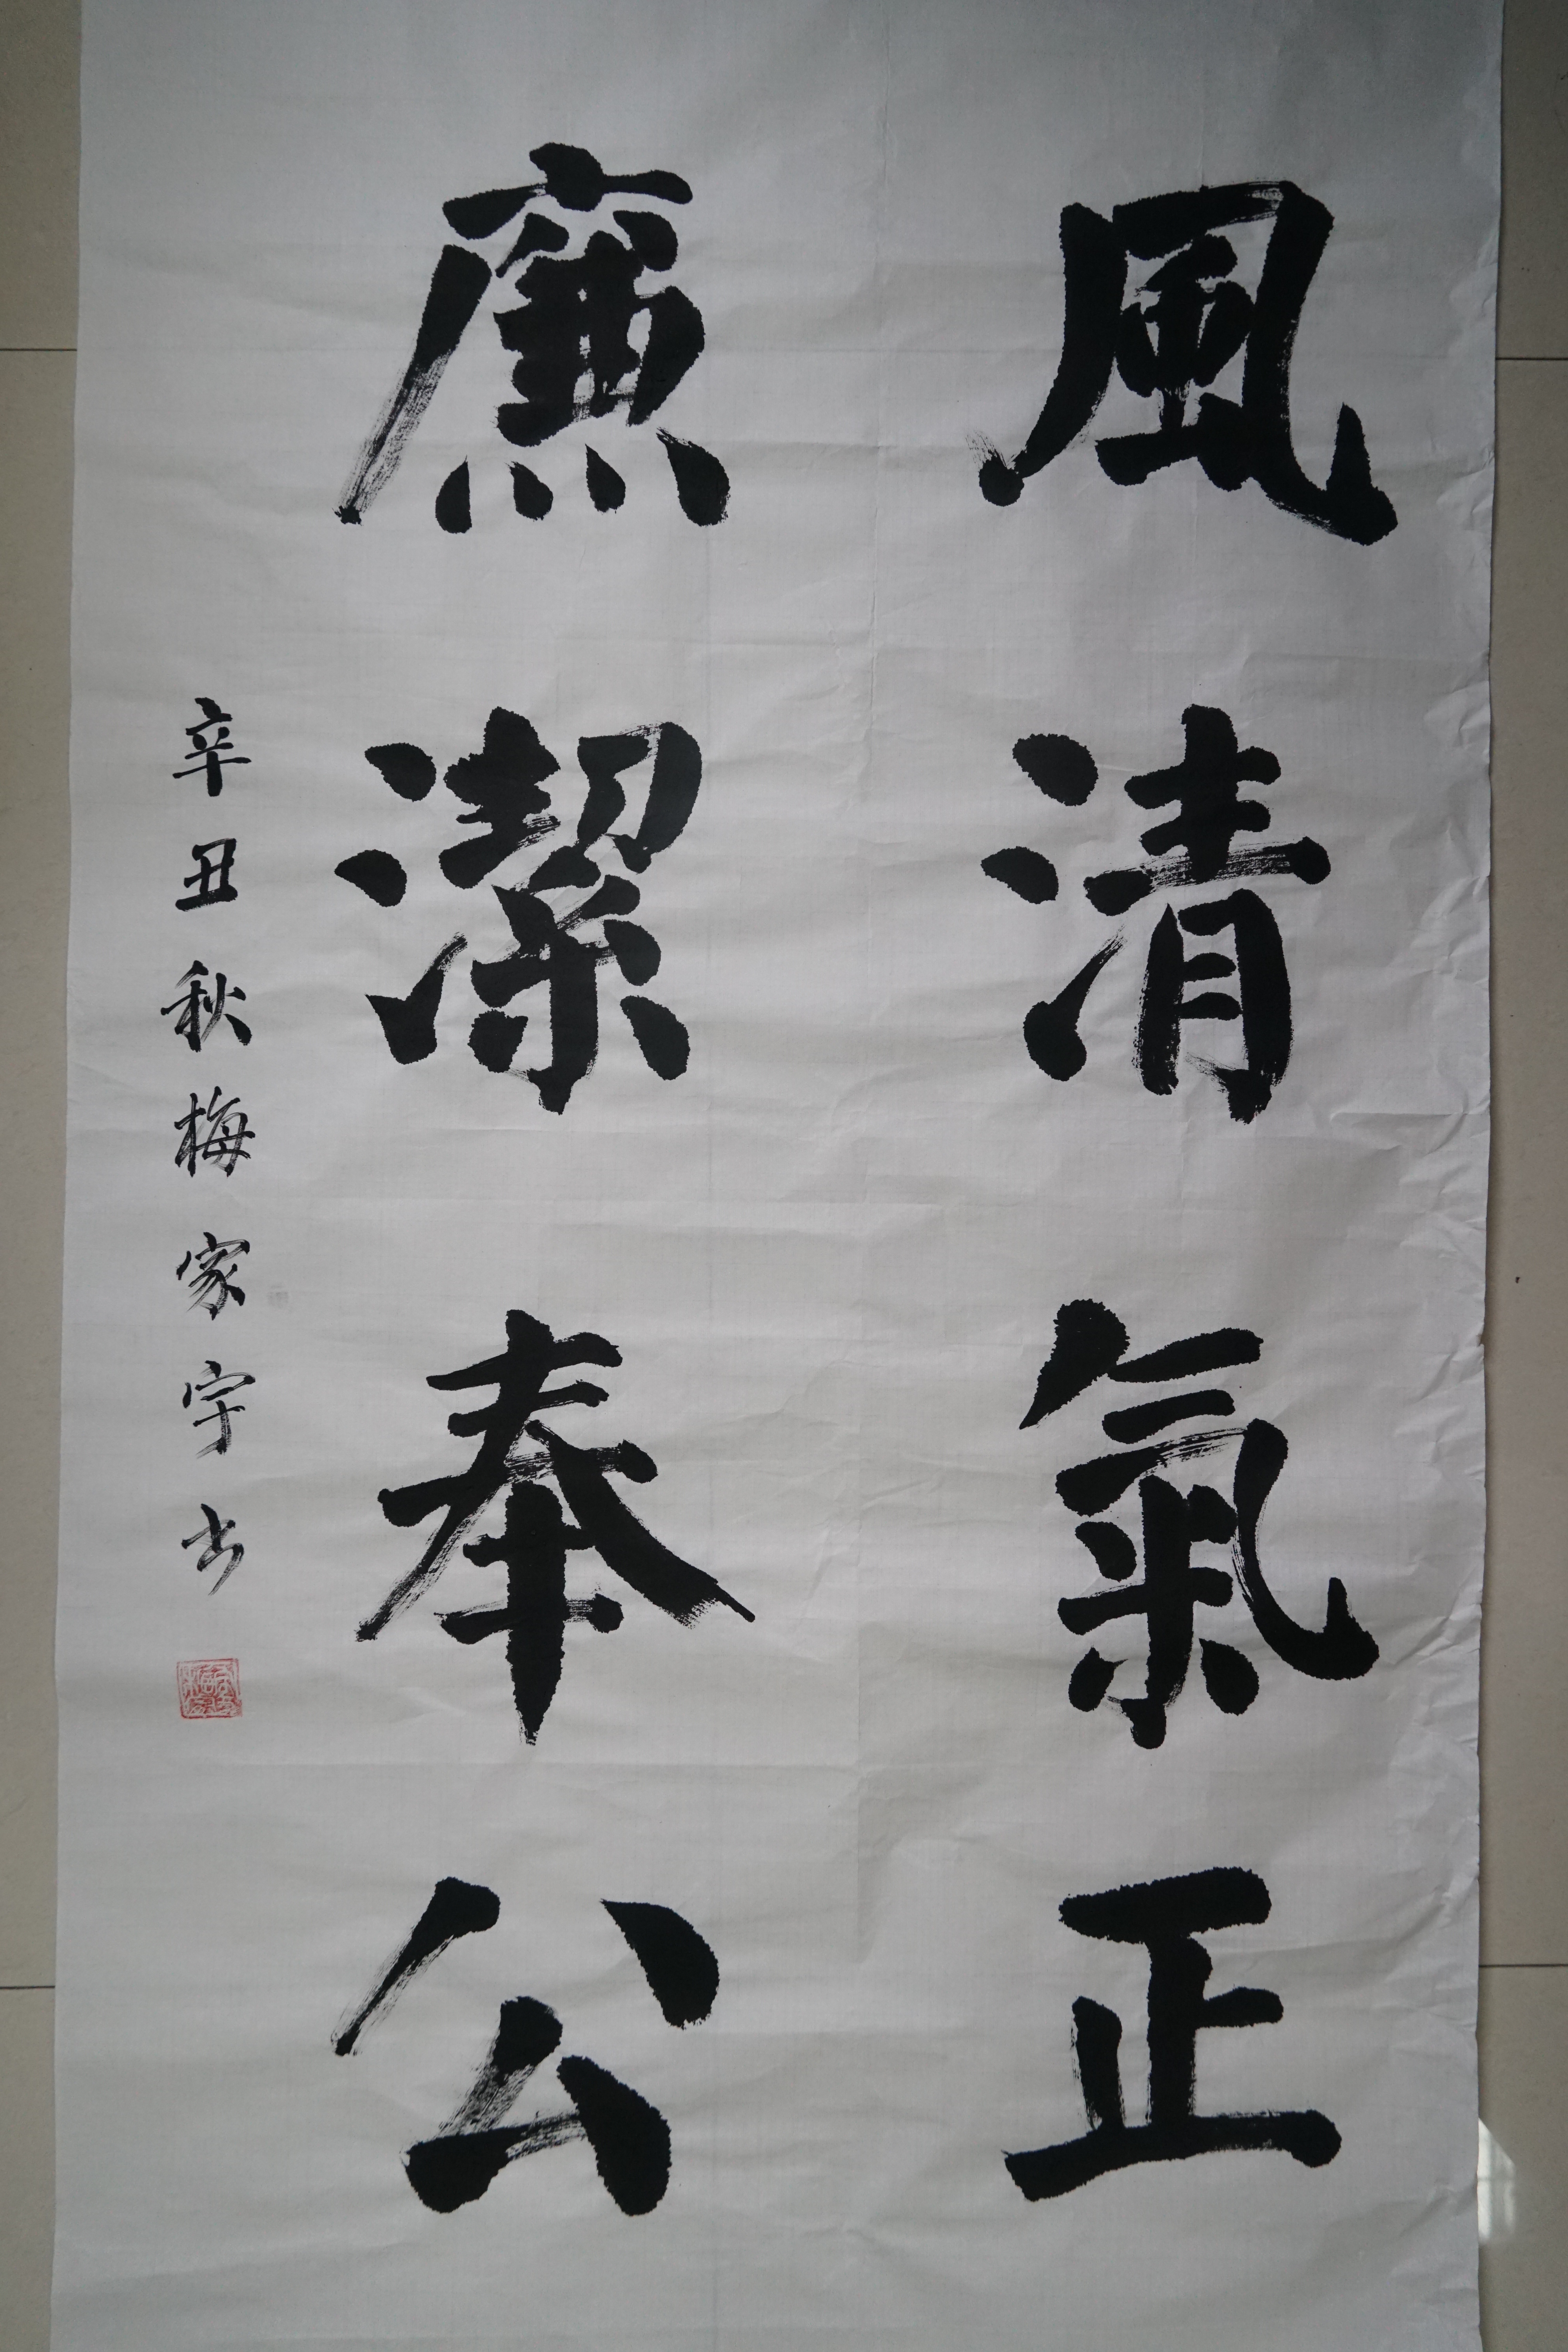 風清氣正
廉潔奉公
辛丑秋梅家宇书